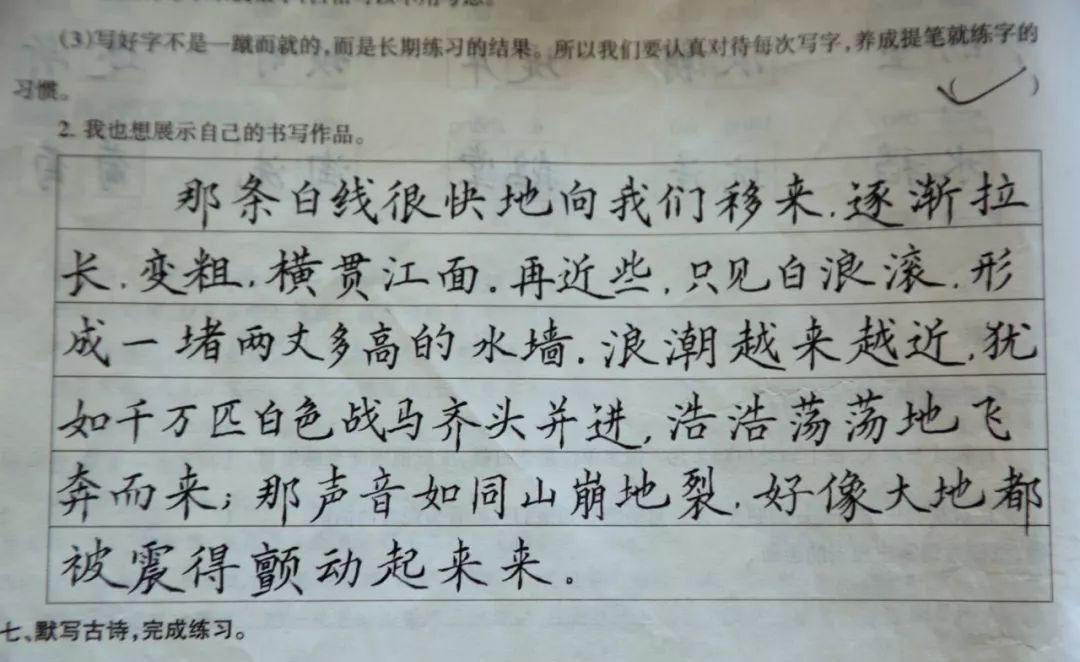 (3)写好字不是一蹴而就的,而是长期练习的结果。所以我们要认真对待每次写字,养成提笔就练字的
习惯。 (✓)
2. 我也想展示自己的书写作品。
那条白线很快地向我们移来,逐渐拉
长,变粗,横贯江面。再近些,只见白浪滚,形
成一堵两丈多高的水墙。浪潮越来越近,犹
如千万匹白色战马齐头并进,浩浩荡荡地飞
奔而来;那声音如同山崩地裂,好像大地都
被震得颤动起来来。
七、默写古诗,完成练习。